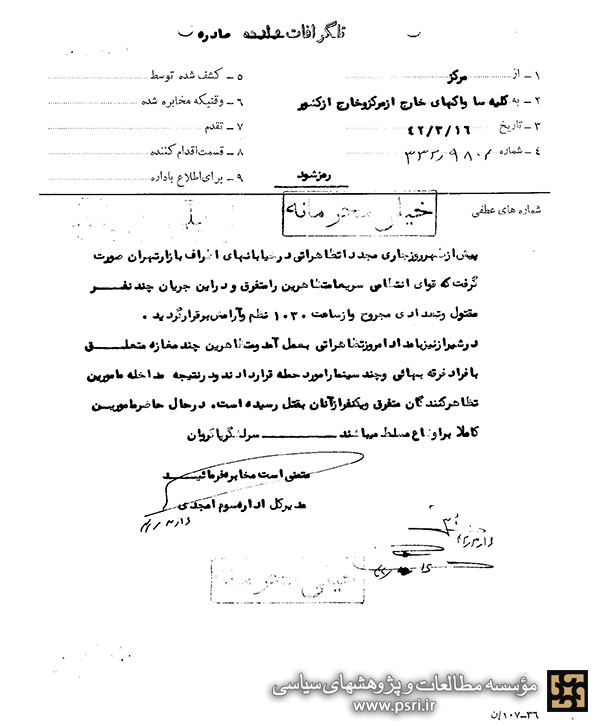 تلگرافات صادره
۱ - از مرکز
۲ - به کلیه ساواکهای خارج ازمرکزوخارج ازکشور
۳ - تاریخ ۴۲/۳/۱۶
۴ - شماره
۵ - کشف شده توسط
۶ - وقتیکه مخابره شده
۷ - تقدم
۸ - قسمت اقدام کننده
۹ - برای اطلاع باداره
رمزشود
شماره های عطفی
خیلی محرمانه
پیش ازظهرروزجاری مجددا تظاهراتی درخیابانهای اطراف بازارتهران صورت
گرفت که قوای انتظامی سریعا متظاهرین رامتفرق و دراین جریان چند نفر
مقتول وتعدادی مجروح وازساعت ۱۰۳۰ نظم وآرامش برقرارگردید .
درشیرازنیزبامداد امروزتظاهراتی بعمل آمدومتظاهرین چند مغازه متعلق
بافراد فرقه بهائی وچند سینمارامورد حمله قراردادند ودرنتیجه مداخله مامورین
تظاهرکنندگان متفرق ویکنفرازآنان بقتل رسیده است . درحال حاضرمامورین
کاملا براوضاع مسلط میباشند ــ سرلشگرپاکروان
متمنی است مخابره فرمائید
مدیرکل اداره سوم امجدی
خیلی محرمانه
مؤسسه مطالعات و پژوهشهای سیاسی
www.psri.ir
۳۶-۱۰۷/ن